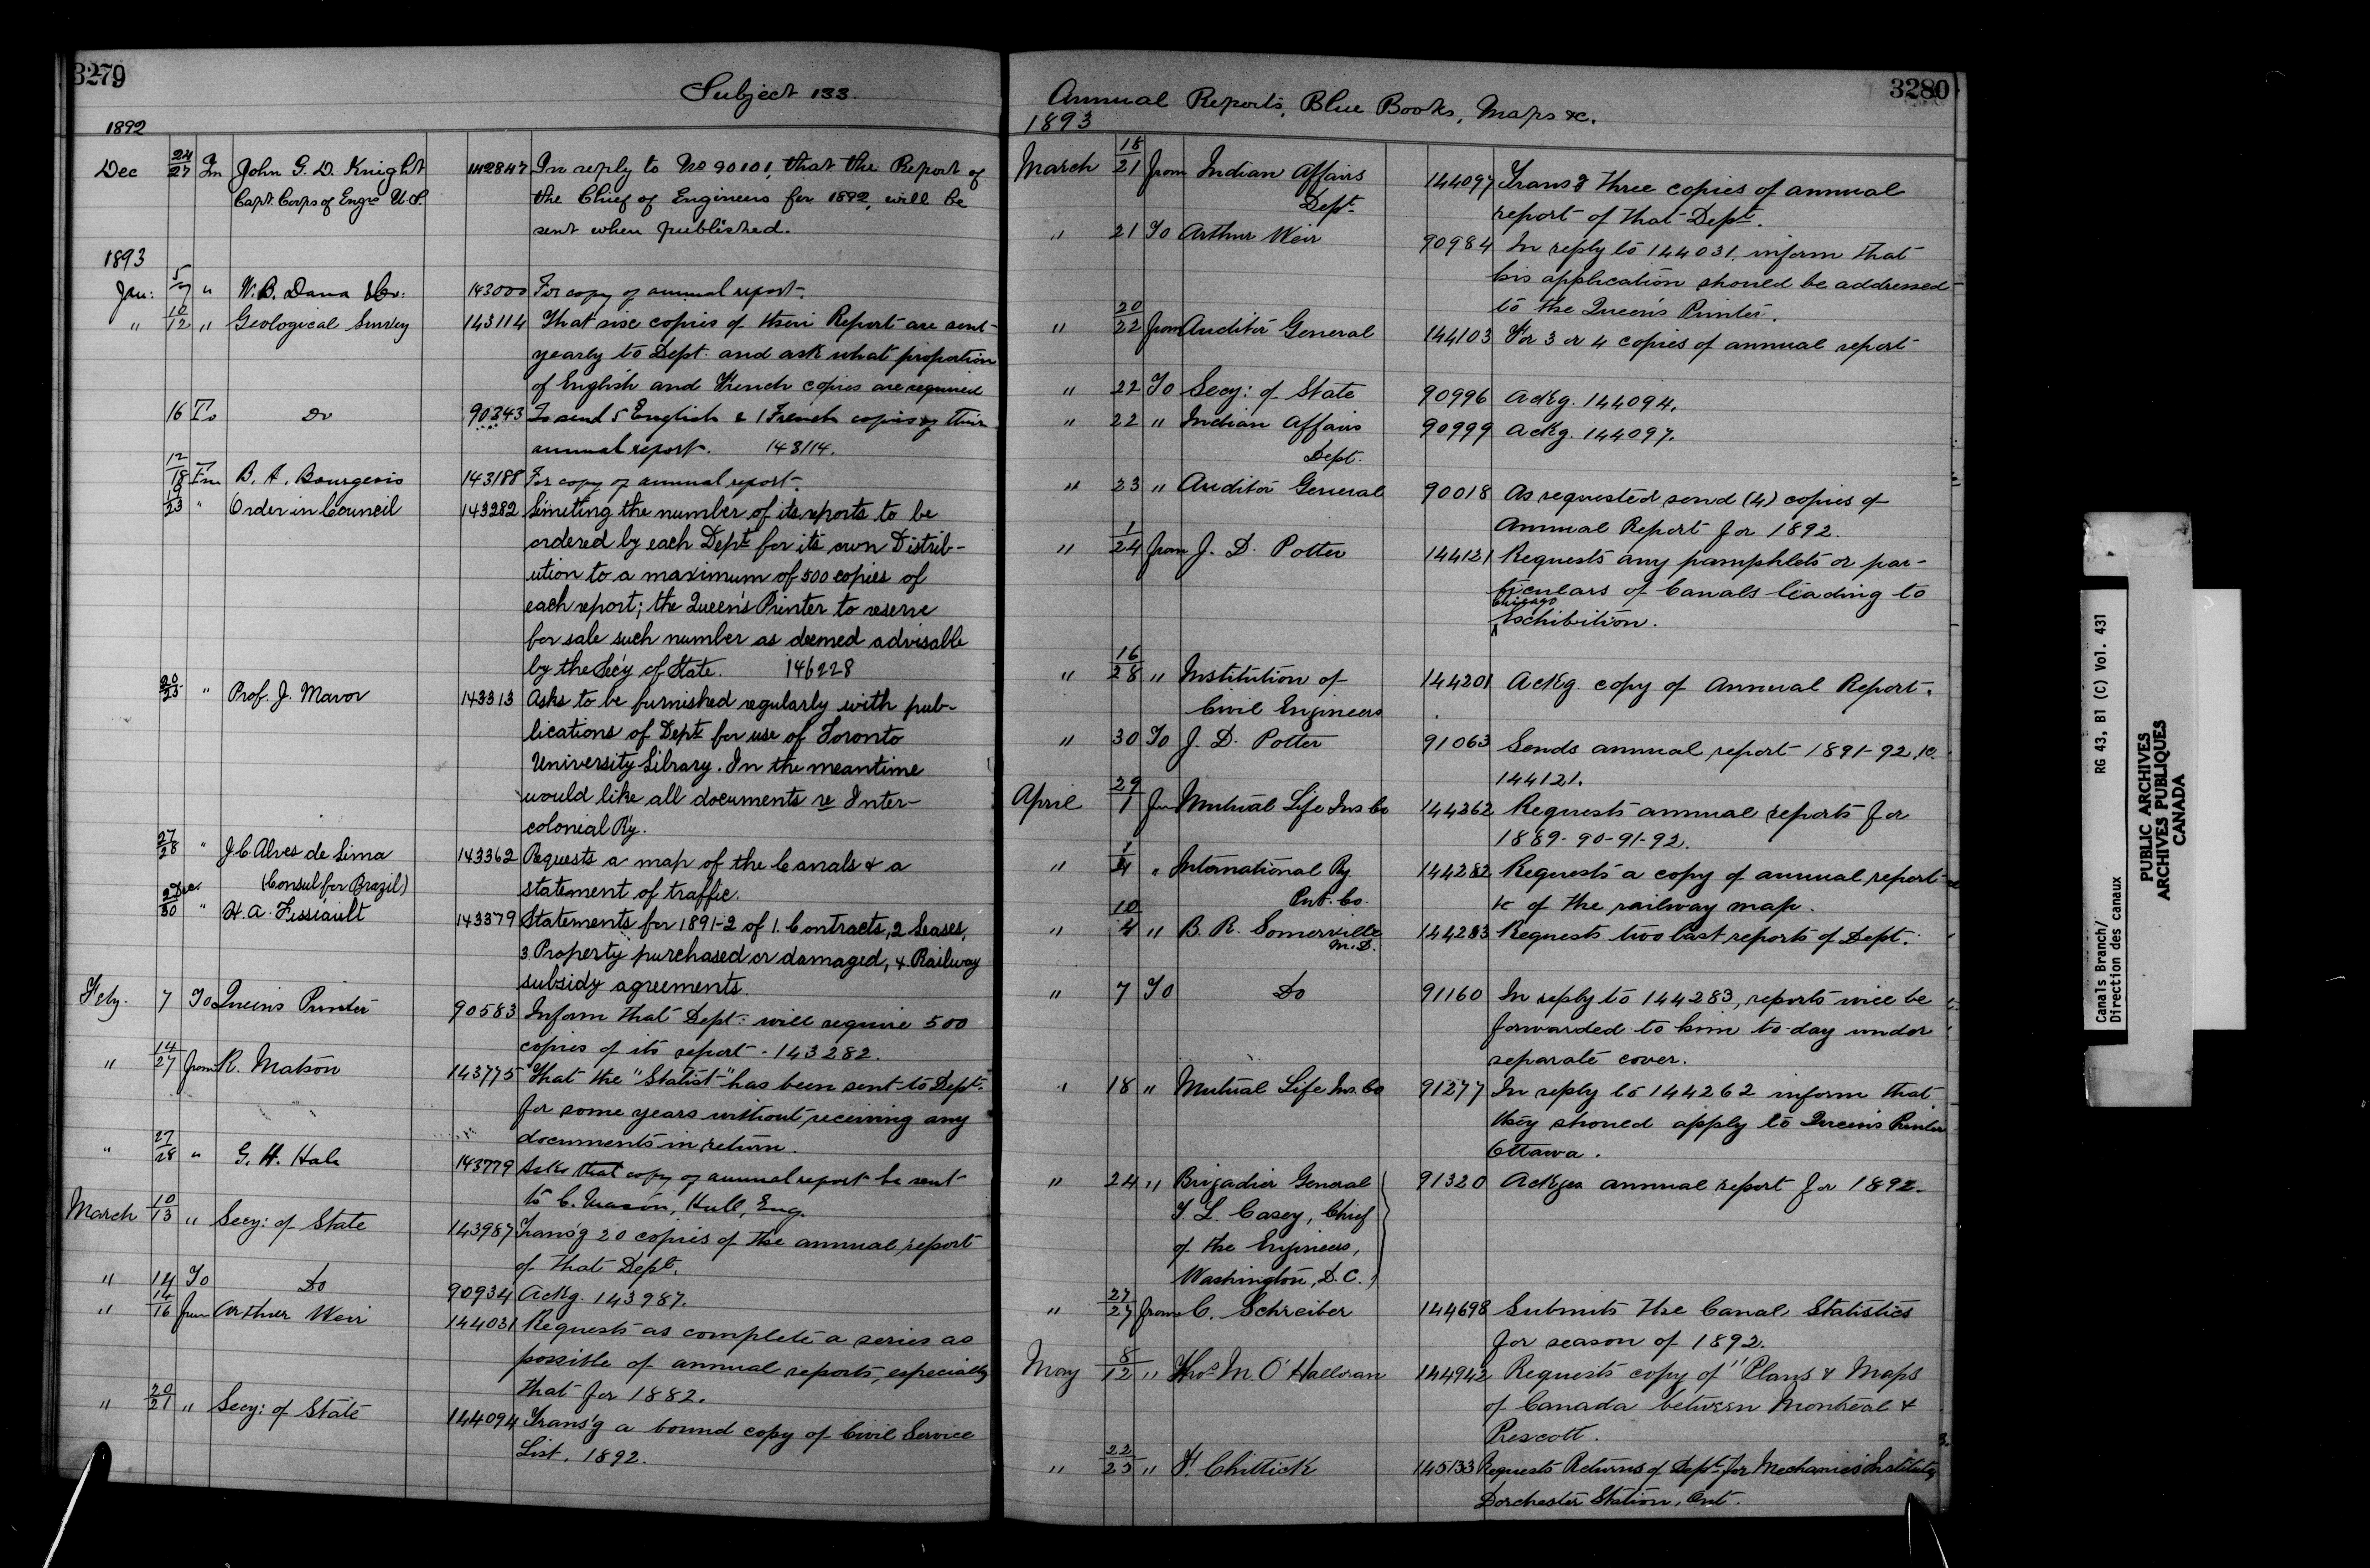 3279
Subject 133.
1892
Dec 24/27 Fm John G. D. Knight 142847 In reply to No 90101, that the Report of
Capt. Corps of Engrs U.S. the Chief of Engineers for 1892, will be
sent when published.
1893
Jan: 5/7 " W. B. Dana & Co: 143000 For copy of annual report.
" 10/12 " Geological Survey 143114 That six copies of their Report are sent
yearly to Dept. and ask what proportion
of English and French copies are required
16 To Do 90343 To send 5 English & 1 French copies of their
annual report. 143114.
12/18 Fm B. A. Bourgeois 143188 For copy of annual report.
19/23 " Order in Council 143282 Limiting the number of its reports to be
ordered by each Dept for its own Distrib-
ution to a maximum of 500 copies of
each report; the Queen's Printer to reserve
for sale such number as deemed advisable
by the Sec'y of State. 146228
20/25 " Prof. J. Mavor 143313 Asks to be furnished regularly with pub-
lications of Dept for use of Toronto
University Library. In the meantime
would like all documents re Inter-
colonial Ry.
27/28 " J. C. Alves de Lima 143362 Requests a map of the Canals & a
(Consul for Brazil) statement of traffic.
2 Dec./30 " H. A. Fissiault 143379 Statements for 1891-2 of 1. Contracts, 2 Leases,
3 Property purchased or damaged, 4. Railway
subsidy agreements.
Feby. 7 To Queens Printer 90583 Inform that Dept. will require 500
copies of its report. 143282.
" 14/27 from R. Matson 143775 That the "Statist" has been sent to Dept.
for some years without receiving any
documents in return.
" 27/28 " G. H. Hale 143779 Asks that copy of annual report be sent
to C. Mason, Hull, Eng.
March 10/13 " Secy: of State 143987 Trans'g 20 copies of the annual report
of that Dept.
" 14 To Do 90934 Ackg. 143987.
" 14/16 from Arthur Weir 144031 Requests as complete a series as
possible of annual reports, especially
that for 1882.
" 20/21 " Secy: of State 144094 Trans'g a bound copy of Civil Service
List, 1892.
3280
Annual Reports, Blue Books, Maps &c.
1893
March 18/21 from Indian Affairs 144097 Trans'g three copies of annual
Dept. report of that Dept.
" 21 To Arthur Weir 90984 In reply to 144031. inform that
his application should be addressed
to the Queen's Printer.
" 20/22 from Auditor General 144103 For 3 or 4 copies of annual report
" 22 To Secy: of State 90996 Ackg. 144094.
" 22 " Indian Affairs 90999 Ackg. 144097.
Dept.
" 23 " Auditor General 90018 As requested send (4) copies of
Annual Report for 1892.
" 1/24 from J. D. Potter 144121 Requests any pamphlets or par-
ticulars of Canals leading to
Chicago
Exhibition.
" 16/28 " Institution of 144201 Ackg. copy of Annual Report.
Civil Engineers
" 30 To J. D. Potter 91063 Sends annual report 1891-92 &c.
144121.
April 29/1 from Mutual Life Ins. Co 144362 Requests annual reports for
1889-90-91-92.
" 1/4 " International Ry 144282 Requests a copy of annual report
Pub. Co. &c of the railway map.
" 10/4 " B. R. Somerville 144283 Requests two last reports of Dept.
M.D.
" 7 To Do 91160 In reply to 144283, reports will be
forwarded to him to-day under
separate cover.
" 18 " Mutual Life Ins. Co 91277 In reply to 144262 inform that
they should apply to Queen's Printer
Ottawa.
" 24 " Brigadier General 91320 Ackges annual report for 1892.
T. L. Casey, Chief
of the Engineers,
Washington, D.C.
" 27/27 from C. Schreiber 144698 Submits the Canal Statistics
for season of 1892.
May 8/12 " Thos. M. O'Halloran 144942 Requests copy of "Plans & Maps
of Canada between Montreal &
Prescott.
" 22/25 " F. Chittick 145133 Requests Returns of Dept. for Mechanics Institute
Dorchester Station, Ont.
Canals Branch/ RG 43, B1 (C) Vol. 431
Direction des canaux
PUBLIC ARCHIVES
ARCHIVES PUBLIQUES
CANADA